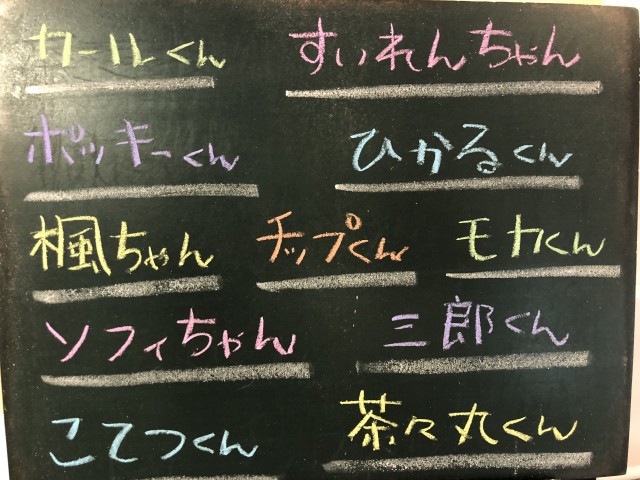 カールくん すいれんちゃん
ポッキーくん ひかるくん
楓ちゃん チップくん モカくん
ソフィちゃん 三郎くん
こてつくん 茶々丸くん